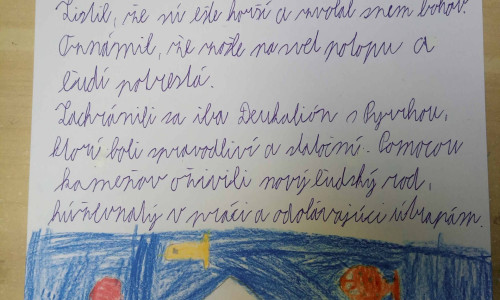 Zistil, že sú ešte horší a zvolal snem bohov.
Oznámil, že zošle na svet potopu a
ľudí potrestá.
Zachránili sa iba Deukalión s Pyrrhou,
ktorí boli spravodliví a statoční. Pomocou
kameňov oživili nový ľudský rod,
húževnatý v práci a odolávajúci útrapám.